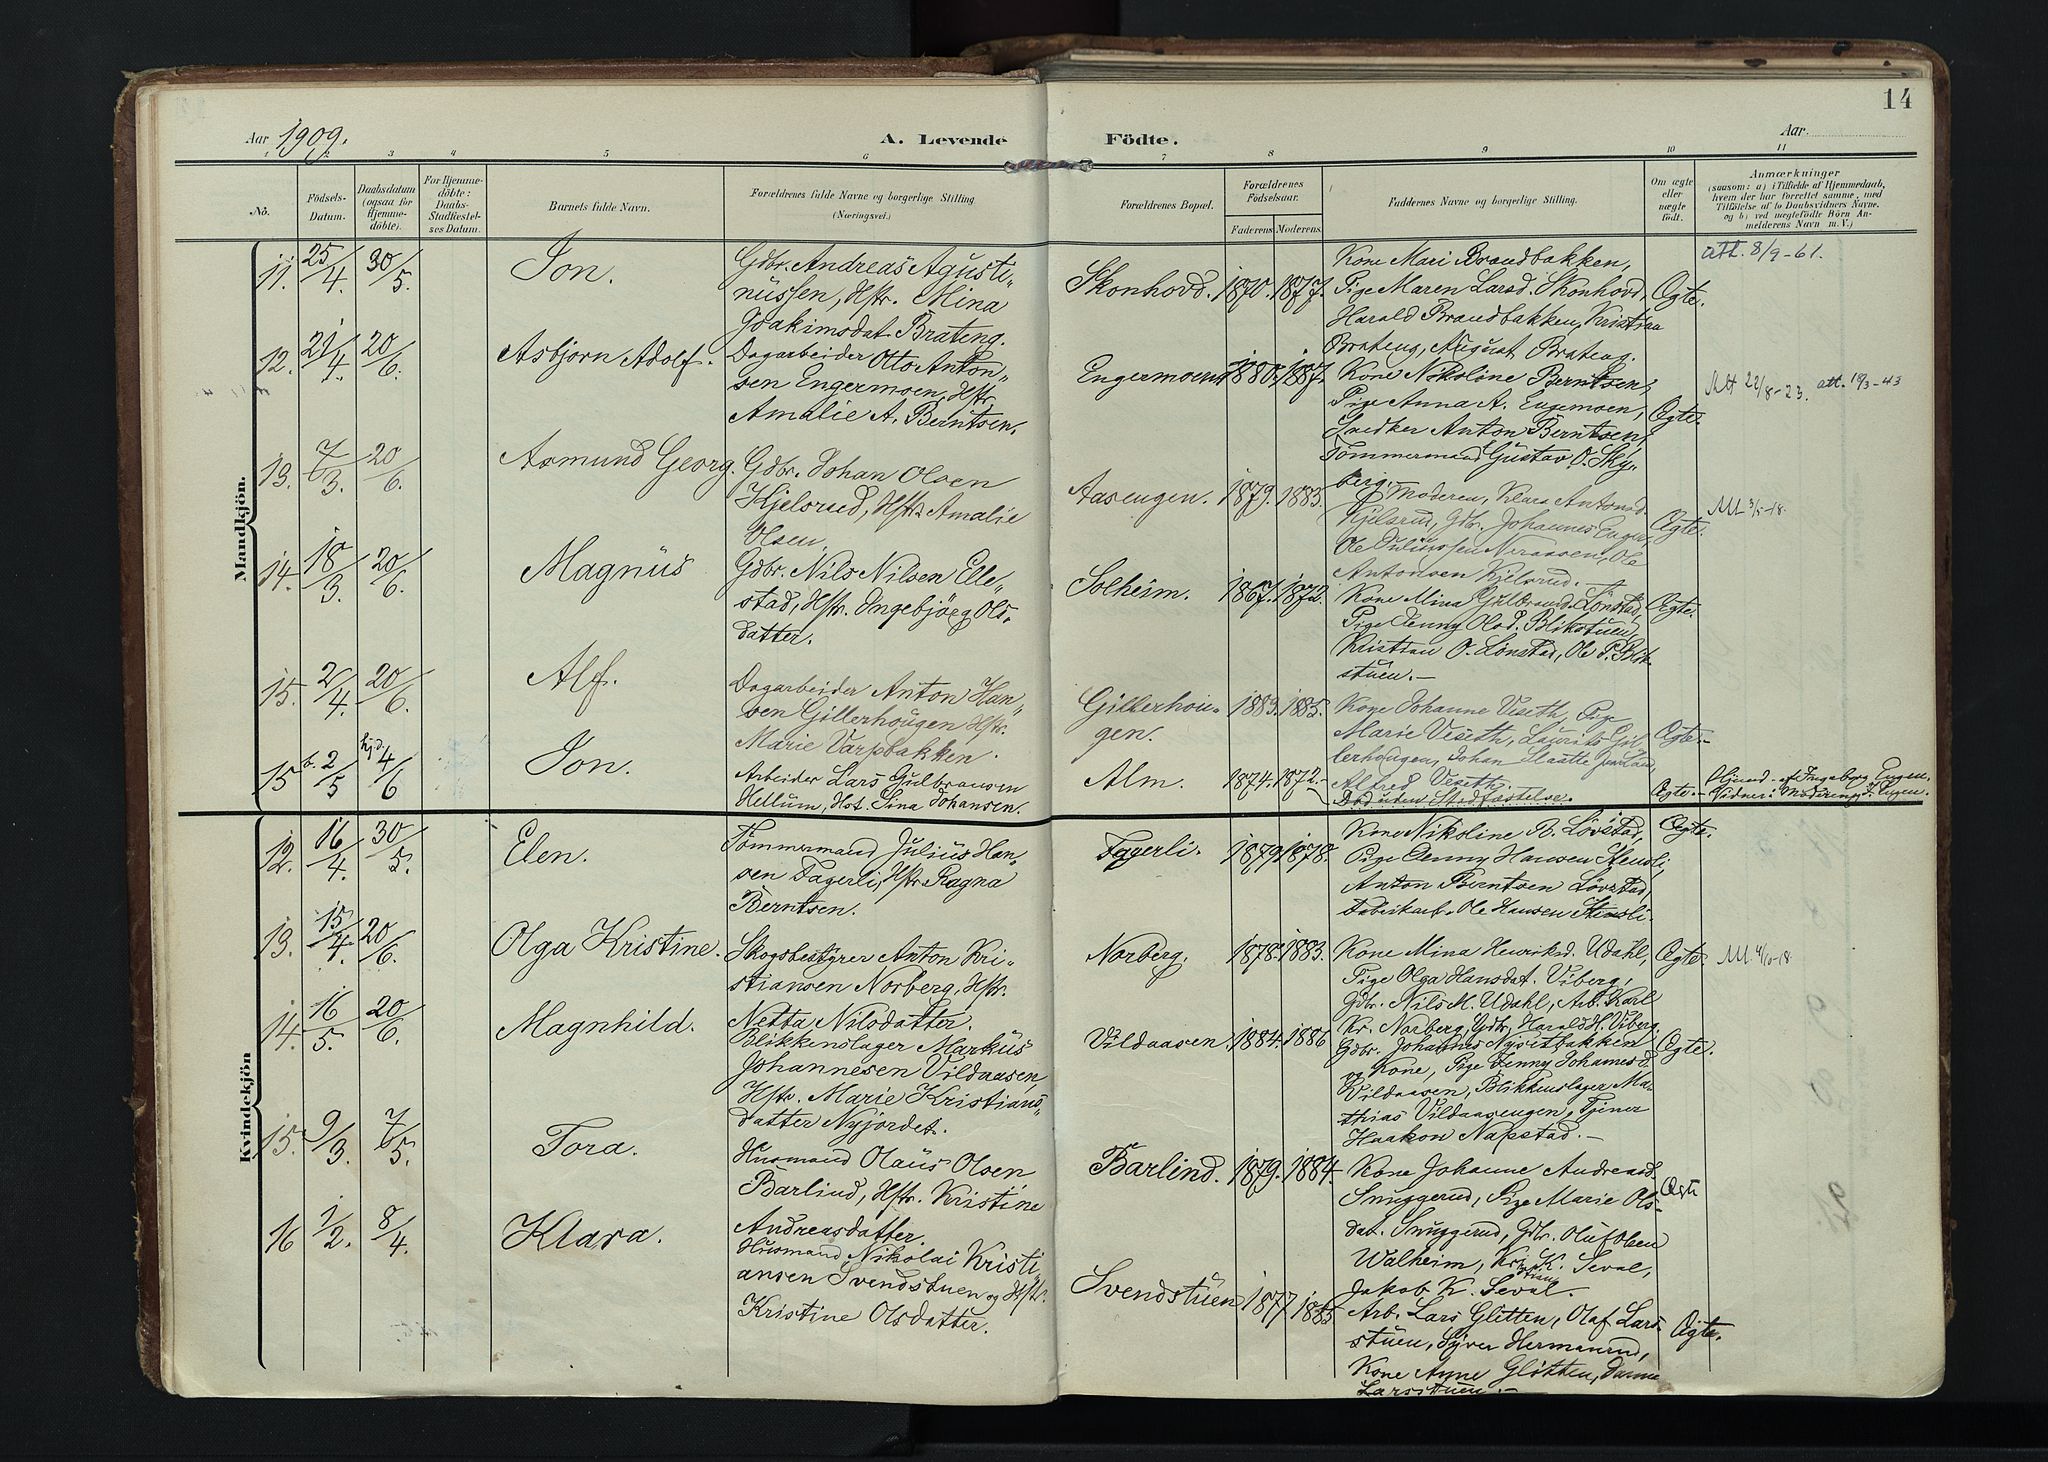 14
Aar 1909.
A. Levende Födte.
Aar
1 2 3 4 5 6 7 8 9 10 11
No.
Födsels-
Datum.
Daabsdatum
(ogsaa for
Hjemme-
döbte).
For Hjemme-
döbte:
Daabs-
Stadfæstel-
ses Datum.
Barnets fulde Navn.
Forældrenes fulde Navne og borgerlige Stilling
(Næringsvei.)
Forældrenes Bopæl.
Forældrenes
Födselsaar.
Faderens Moderens.
Faddernes Navne og borgerlige Stilling.
Om ægte
eller
uægte
födt.
Anmærkninger
(saasom: a) i Tilfælde af Hjemmedaab,
hvem der har forrettet samme, med
Tilföielse af to Daabsvidners Navne,
og b) ved uægtefödte Börn An-
melderens Navn m. V.)
Mandkjön.
11. 25/4. 30/5. Jon.
Gdbr. Andreas Agusti-
nussen, Hstr. Mina
Joakimsdat Brateng.
Skonhovd. 1870. 1877.
Kone Mari Brandbakken,
Pige Maren Larsd. Skonhovd,
Harald Brandbakken, Kristian
Brateng, August Brateng.
Ægte.
att. 8/9-61.
12. 21/4. 20/6. Asbjørn Adolf.
Dagarbeider Otto Anton-
sen Engermoen, Hstr.
Amalie A. Berntsen.
Engermoen 1880. 1887.
Kone Nikoline Berntsen,
Pige Anna A. Engemoen,
Snedker Anton Berntsen,
Tømmermand Gustav O. Sky-
berg.
Ægte.
Att 22/8-23. att. 19/3-43
13. 7/3. 20/6. Asmund Georg.
Gdbr. Johan Olsen
Kjelsrud, Hstr. Amalie
Olsen.
Aasengen. 1879. 1883.
Moderen, Klara Antonsd.
Kjelsrud, Gdbr. Johannes Enger,
Ole Juliussen Neraasen, Ole
Antonsen Kjelsrud.
Ægte.
Att 3/5-18.
14. 18/3. 20/6. Magnus
Gdbr. Nils Nilsen Elle-
stad, Hstr. Ingebjörg Ols-
datter.
Solheim. 1867. 1872.
Kone Mina Gulbrandsd. Lönstad,
Pige Jenny Olsd. Blikstuen,
Kristian O. Lönstad, Ole P. Blik-
stuen.-
Ægte.
15. 2/4. 20/6. Alf.
Dagarbeider Anton Han-
sen Gillerhougen Hstr.
Marie Varpbakken.
Gillerhou-
gen.
1883. 1885.
Kone Johanne Veseth, Pige
Marie Veseth, Laurits Gil-
lerhougen, Johan Slaatte
Alfred Veseth.
Ægte.-
15 b. 2/5 hjd 4/6 Jon.
Arbeider Lars Gulbransen
Hellum, Hst. Sina Johansen.
Alm. 1874. 1872.-
Död uden Stadfæstelse.
Ægte.-
Hjmd. af Ingeborg Engen.
Vidner: Moderen og J. Engen.
Kvindekjön
12. 16/4. 30/5. Elen.
Tömmermand Julius Han-
sen Fagerli, Hstr. Ragna
Berntsen.
Fagerli. 1879. 1878.
Kone Nikoline B. Lövstad,
Pige Jenny Hansen Stensli,
Anton Berntsen Lövstad,
Fabrikarb. Ole Hansen Stensli.
Ægte.
13. 15/4. 20/6. Olga Kristine.
Skogsbestyrer Anton Kri-
stiansen Norberg, Hstr.
Netta Nilsdatter.
Norberg. 1878. 1883.
Kone Mina Henriksd. Udahl,
Pige Olga Hansdat. Viberg,
Gdbr. Nils M. Udahl, Arb. Karl
Kr. Norberg, Gdbr. Harald H. Viberg.
Ægte.
Att. 4/10-18.
14. 16/5. 20/6. Magnhild.
Blikkenslager Markus
Johannesen Vildaasen,
Hstr. Marie Kristians-
datter Nyjordet.
Vildaasen. 1884. 1886
Gdbr. Johannes Nysetbakken
og Kone, Pige Jenny Johannesd.
Vildaasen, Blikkenslager Ma-
thias Vildaasengen, Tjener
Haakon Napstad.-
Ægte.
15. 9/3. 7/5. Tora.
Husmand Olaus Olsen
Barlind, Hstr. Kristine
Andreasdatter.
Barlind. 1879. 1884.
Kone Johanne Andreasd.
Snuggerud, Pige Marie Ols-
dat. Snuggerud, Gdbr. Oluf Olsen
Walheim, Kristian K. Seval,
Jakob K. Seval.
Ægte
16 1/2. 8/4. Klara.
Husmand Nikolai Kristi-
ansen Svendstuen og Hstr.
Kristine Olsdatter.
Svendstuen 1877 1885
Arb. Lars Glitten, Olaf Lars-
stuen, Syver Hermanrud,
Kone Anne Glitten,
Larsstuen.-
Ægte.